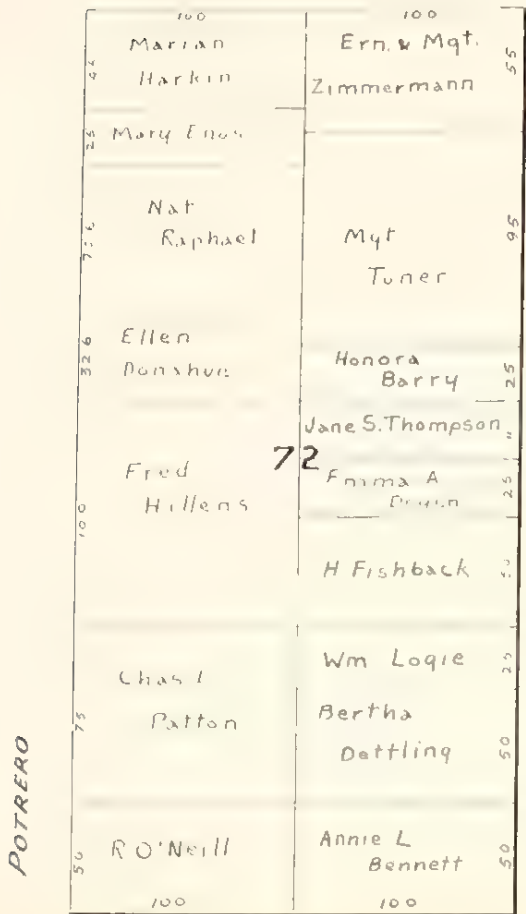 100
Marian
Harkin
25
Mary Enos
Nat
Raphael
Ellen
Donahue
326
Fred
Hillens
100
Chas L
Patton
75
R O'Neill
50
100
72
100
Ern. & Mgt.
Zimmermann
55
Mgt
Tuner
95
Honora
Barry
25
Jane S. Thompson
"
Emma A
25
H Fishback
Wm Logie
25
Bertha
Dettling
50
Annie L
Bennett
50
100
POTRERO